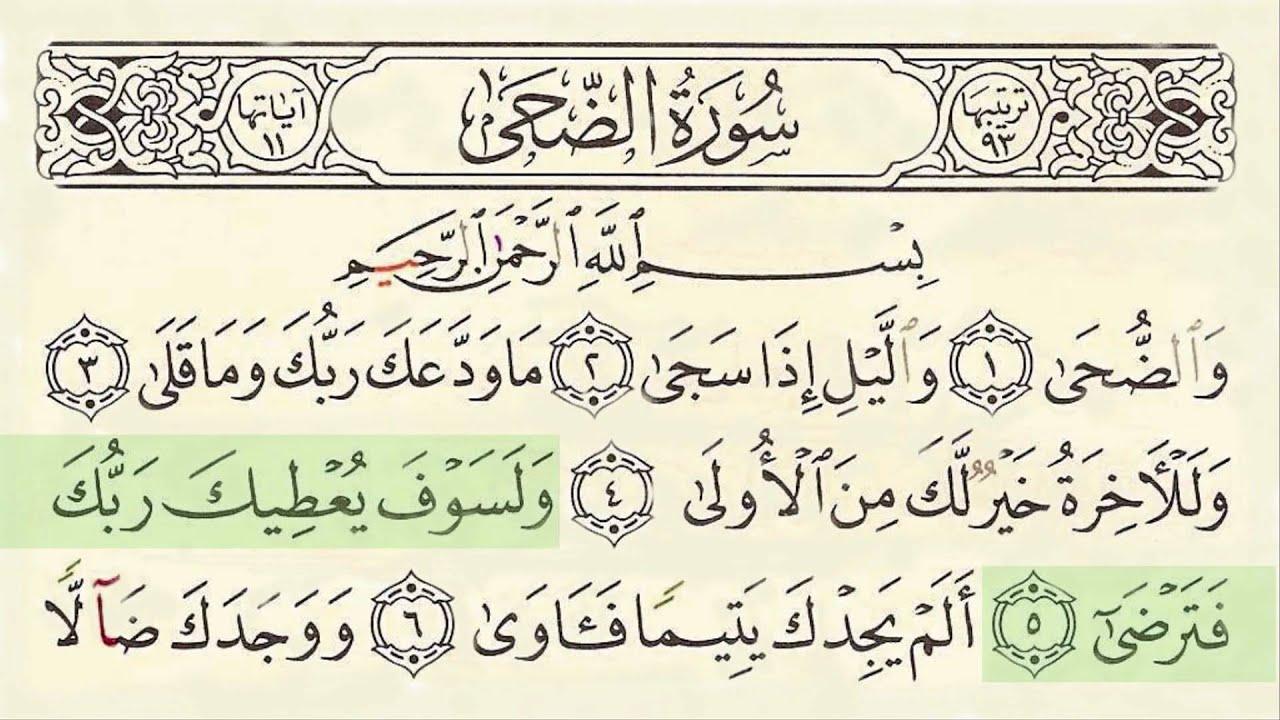 ترتيبها ٩٣
سُورَةُ الضُّحَىٰ
آياتها ١١
بِسْمِ ٱللَّهِ ٱلرَّحْمَٰنِ ٱلرَّحِيمِ
وَٱلضُّحَىٰ ١ وَٱلَّيْلِ إِذَا سَجَىٰ ٢ مَا وَدَّعَكَ رَبُّكَ وَمَا قَلَىٰ ٣
وَلَلْأَخِرَةُ خَيْرٌ لَّكَ مِنَ ٱلْأُولَىٰ ٤ وَلَسَوْفَ يُعْطِيكَ رَبُّكَ
فَتَرْضَىٰٓ ٥ أَلَمْ يَجِدْكَ يَتِيمًا فَـَٔاوَىٰ ٦ وَوَجَدَكَ ضَآلًّا